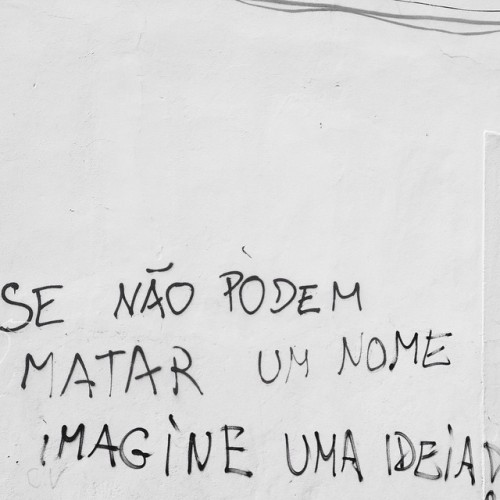 SE NÃO PODEM
MATAR UM NOME
IMAGINE UMA IDEIA